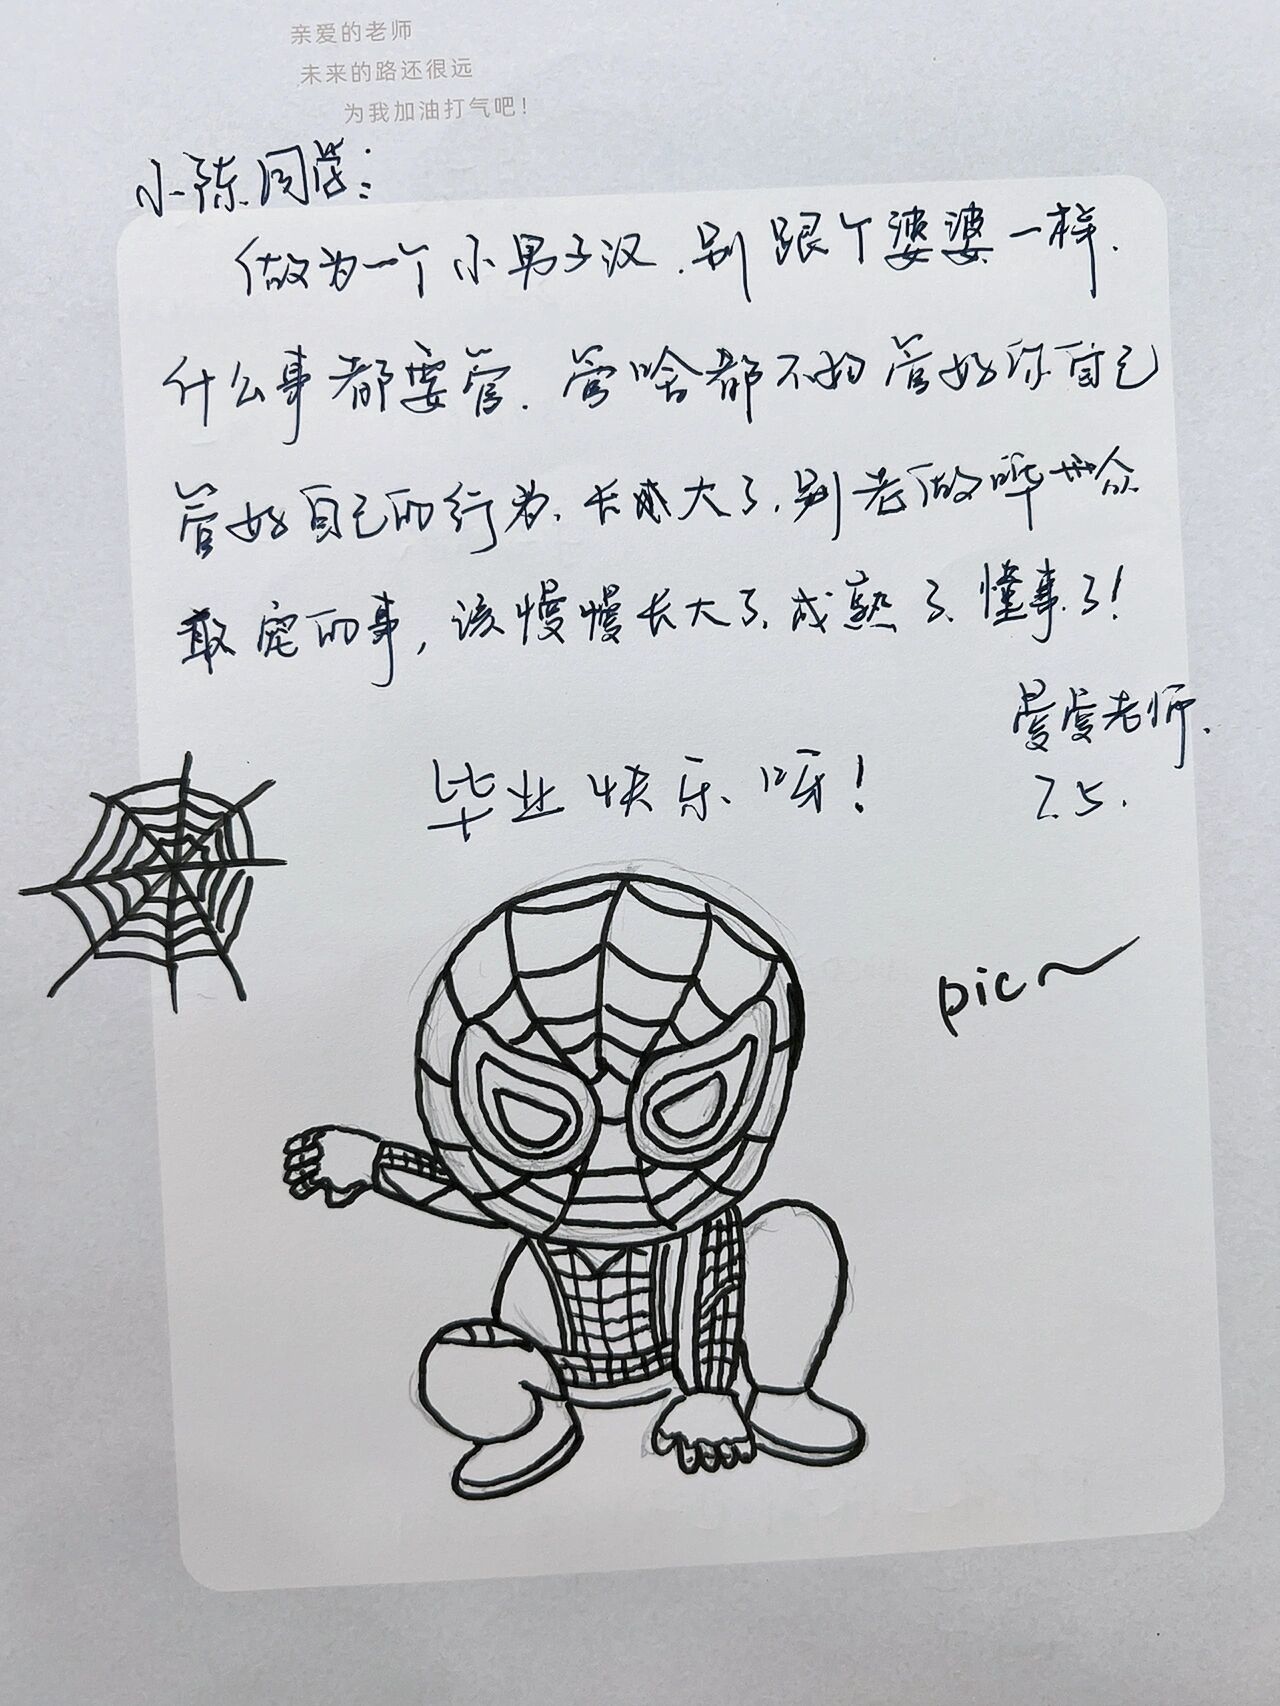 亲爱的老师
未来的路还很远
为我加油打气吧！
小陈同学：
做为一个小男子汉，别跟个婆婆一样，
什么事都要管，管啥都不如管好你自己
管好自己的行为，长大了，别老做哗众
取宠的事，该慢慢长大了，成熟了，懂事了！
老师.
7.5.
毕业快乐呀！
pic~